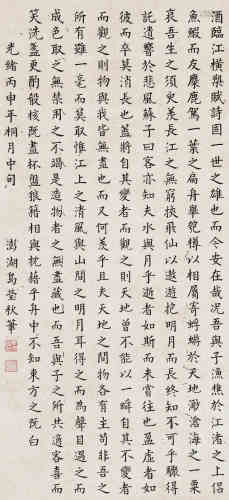 酒臨江橫槊賦詩固一世之雄也而今安在哉況吾與子漁樵於江渚之上侶
魚蝦而友麋鹿駕一葉之扁舟舉匏樽以相屬寄蜉蝣於天地渺滄海之一粟
哀吾生之須臾羨長江之無窮挾飛仙以遨遊抱明月而長終知不可乎驟得
託遺響於悲風蘇子曰客亦知夫水與月乎逝者如斯而未嘗往也盈虛者如
彼而卒莫消長也蓋將自其變者而觀之則天地曾不能以一瞬自其不變者
而觀之則物與我皆無盡也而又何羨乎且夫天地之間物各有主苟非吾之
所有雖一毫而莫取惟江上之清風與山間之明月耳得之而為聲目遇之而
成色取之無禁用之不竭是造物者之無盡藏也而吾與子之所共適客喜而
笑洗盞更酌殽核既盡杯盤狼籍相與枕藉乎舟中不知東方之既白
光緒丙申年桐月中旬 澎湖島